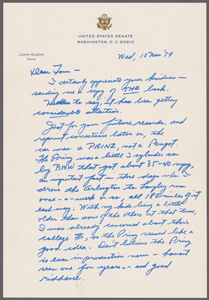 UNITED STATES SENATE
WASHINGTON, D.C. 20510
JOHN GLENN
OHIO
Wed, 10 Nov '79
Dear Tom —
I certainly appreciate your kindness in
sending me a copy of book.
Needless to say, it has been getting
considerable attention.
Just for your future records, and
repeat correction later on, the
car was a PRINZ, not a Peugot.
The Prinz was a little 2 cylinder car
by that got about 35-40 mpg,
in those days when I
drove the Arlington to Langley run
once-a-week or so, all 180 miles of it
each way. With my kids being a little
older than some of the other but that time,
I was already concerned about their
college $, so the Prinz seemed like a
good idea. Don't believe the Prinz
is even in production now — haven't
seen one for years — and good
riddance.